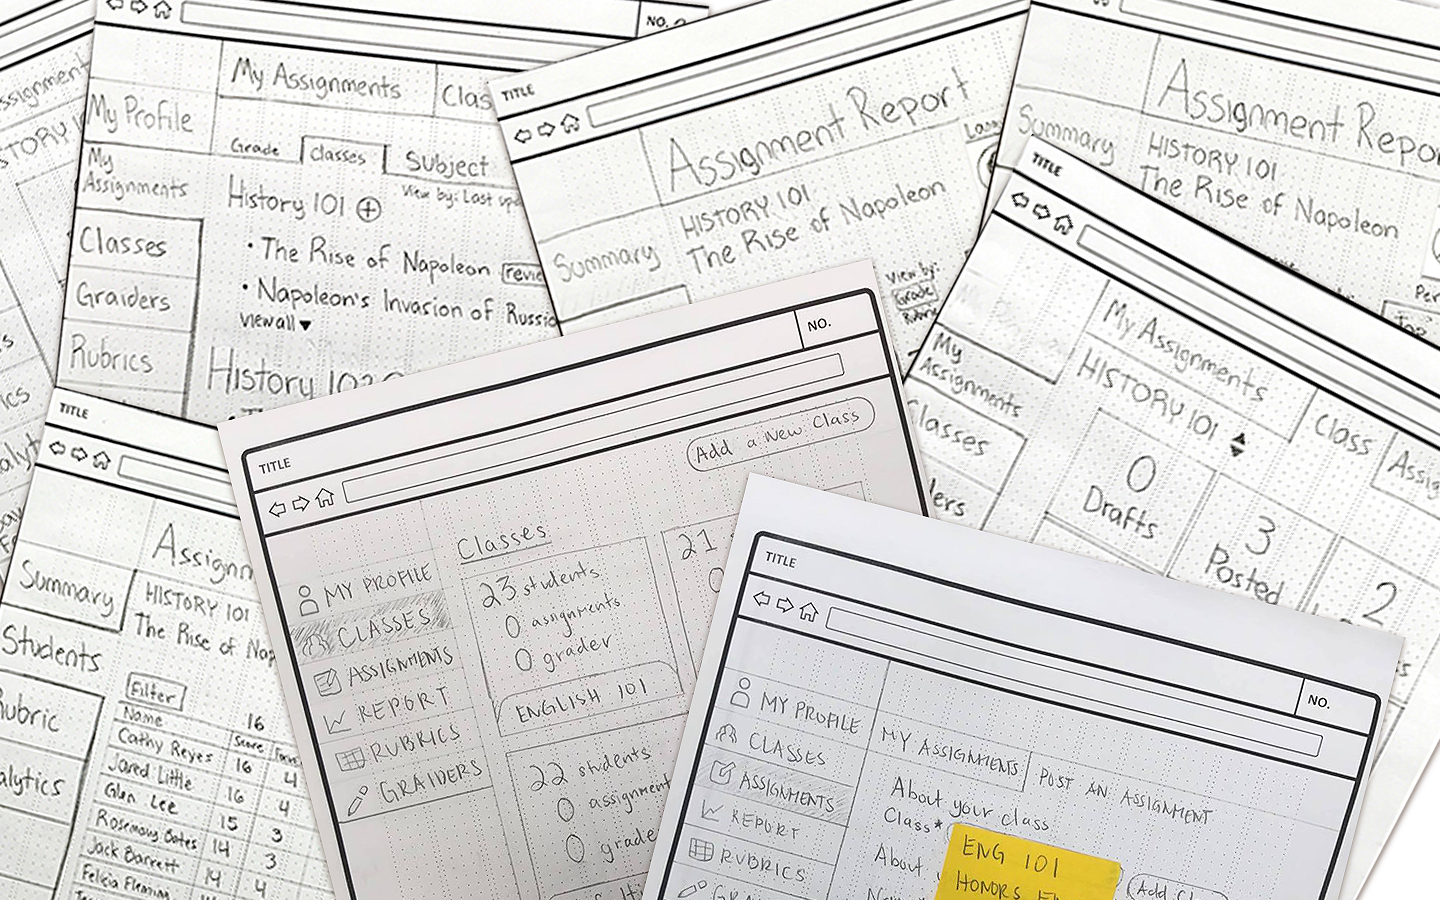 NO.
My Assignments
Clas
My Profile
My
Assignments
Classes
Graiders
Rubrics
Grade
Classes
Subject
View by: Last
History 101
• The Rise of Napoleon
• Napoleon's Invasion of Russia
view all ▼
History 102
TITLE
Assignment Report
HISTORY 101
The Rise of Napoleon
Summary
View by:
Grade
Assignment Repo
Summary
HISTORY 101
The Rise of Napoleon
Per
TITLE
My Assignments
Class
Assig
My
Assignments
HISTORY 101
Classes
ders
0
Drafts
3
Posted
2
TITLE
Assignm
Summary
HISTORY 101
The Rise of Nap
Students
Rubric
alytics
Filter
Name
16
Score
Cathy Reyes 16 4
Jared Little 16 4
Glen Lee 15 3
Rosemary Bates 14 3
Jack Barrett 14 4
Felicia Fleming
TITLE
NO.
Add a New Class
MY PROFILE
CLASSES
ASSIGNMENTS
REPORT
RUBRICS
GRAIDERS
Classes
23 students
0 assignments
0 grader
ENGLISH 101
21
0
22 students
0 assignment
0 grade
TITLE
NO.
MY PROFILE
CLASSES
ASSIGNMENTS
REPORT
RUBRICS
GRA
MY ASSIGNMENTS
POST AN ASSIGNMENT
About your class
Class*
About
ENG 101
HONORS
Add Cl